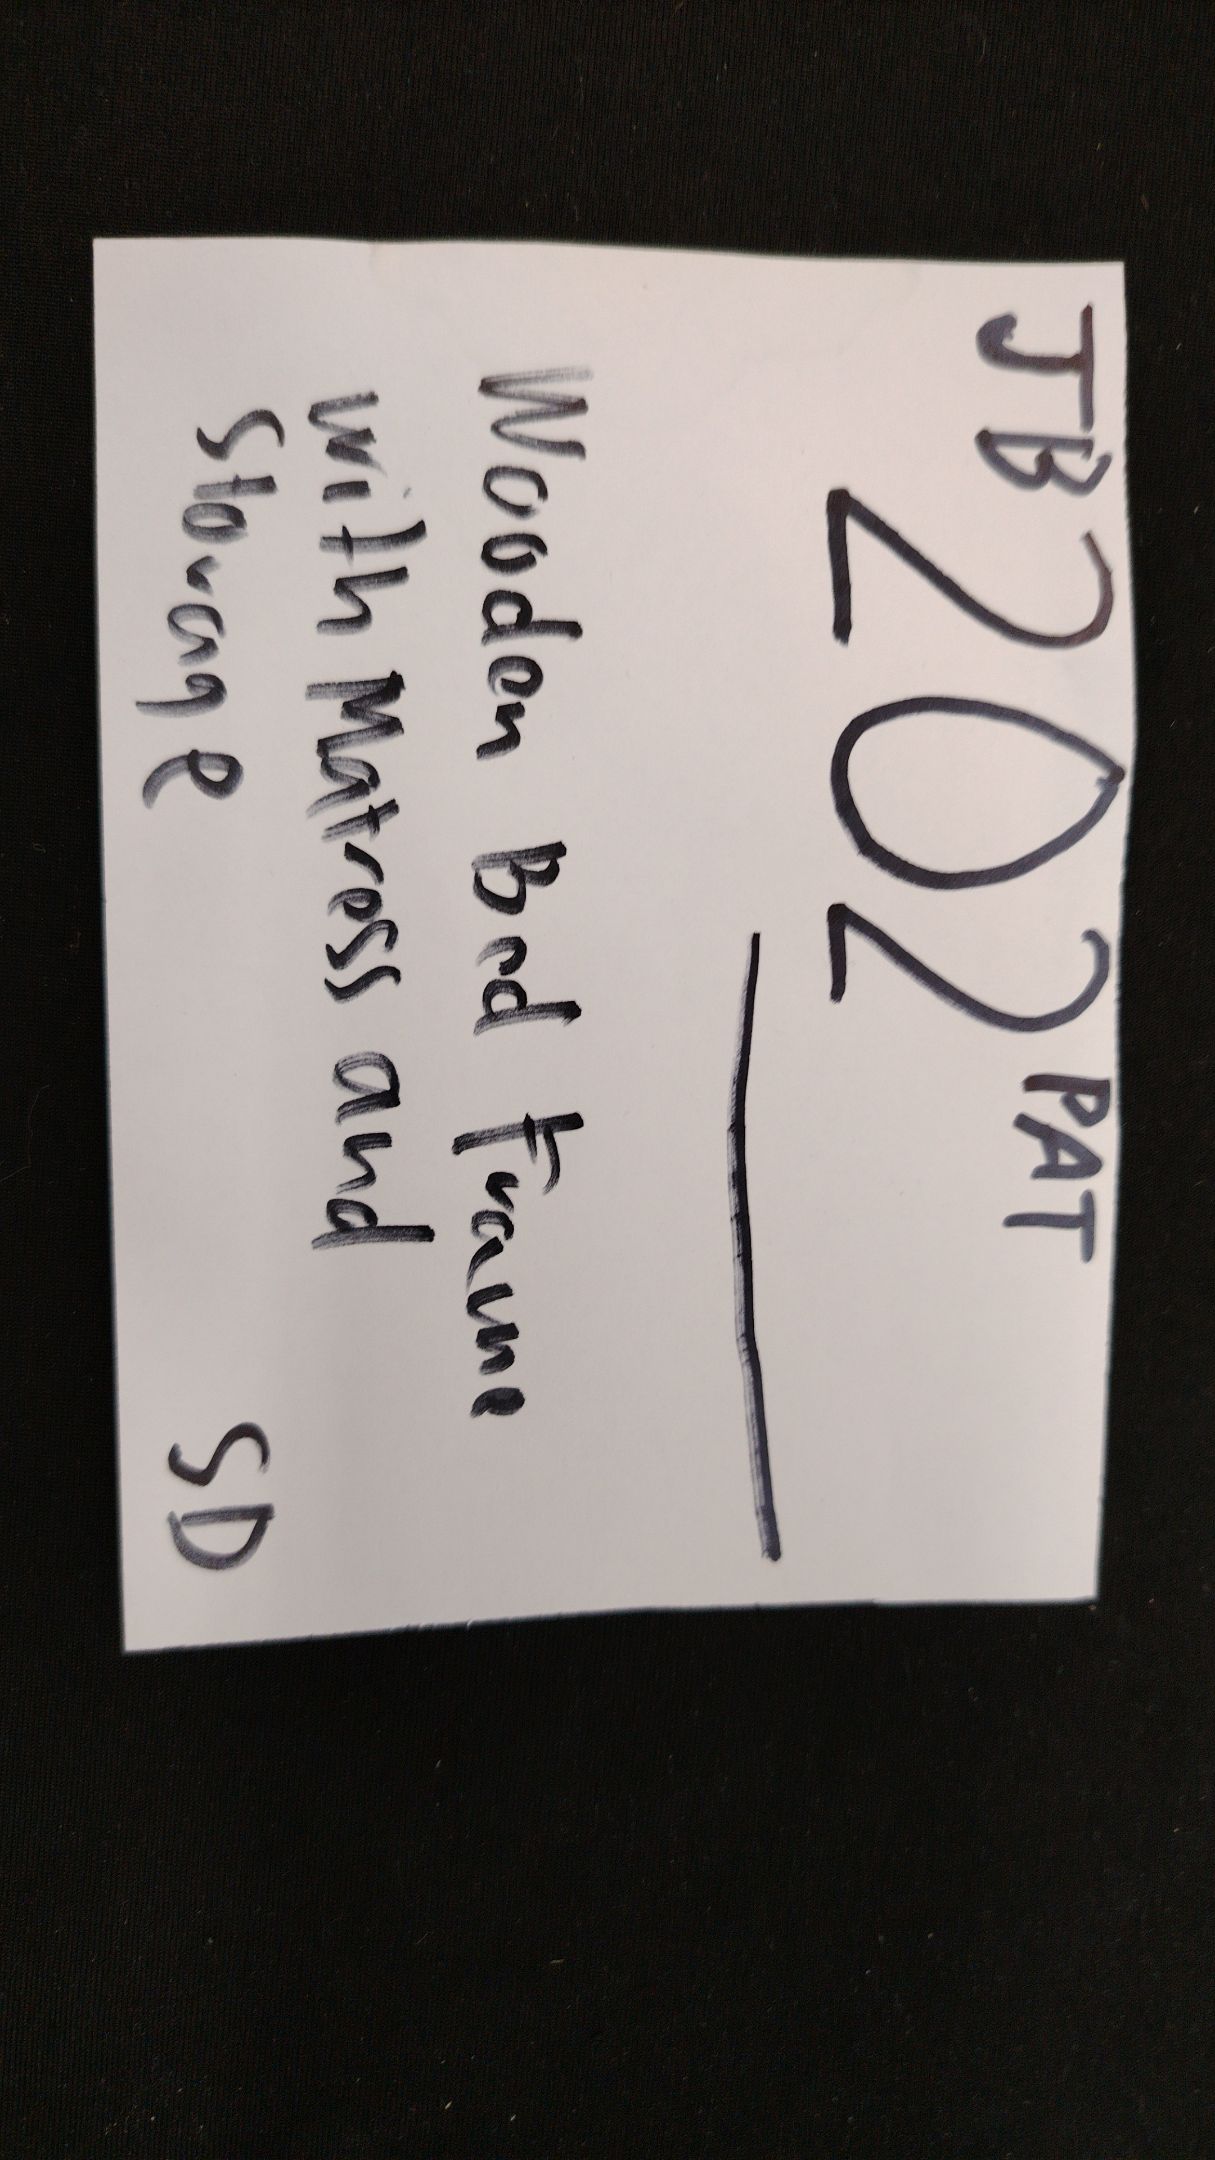 JB 202 PAT
Wooden Bed Frame
with Matress and
Storage
SD